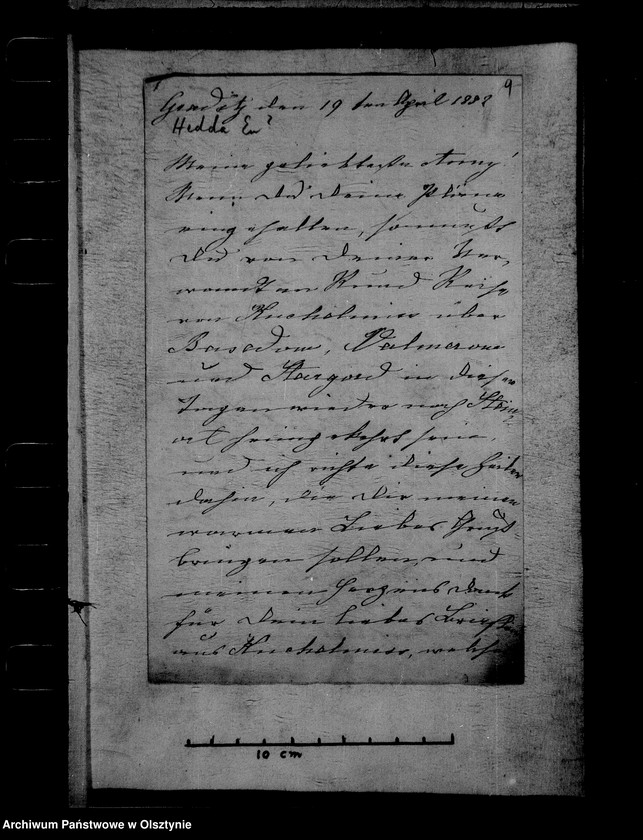 9
den 19 ten April 1888
Hedda En?
Meine geliebteste Anny!
Wenn Du Deine Pläne
eingehalten, so mußt
Du von Deiner Ver-
wandten Rund Reise
von Kuckelmiss über
Basedow,
und Stargord in diesen
Tagen wieder nach
heimgekehrt sein,
und ich richte diese Zeilen
dahin, die Dir meinen
warmen Liebes Gruß
bringen sollen, und
meinen Herzens Dank
für Dein liebes Briefchen
aus Kuckelmiss, welches
10 cm
Archiwum Państwowe w Olsztynie